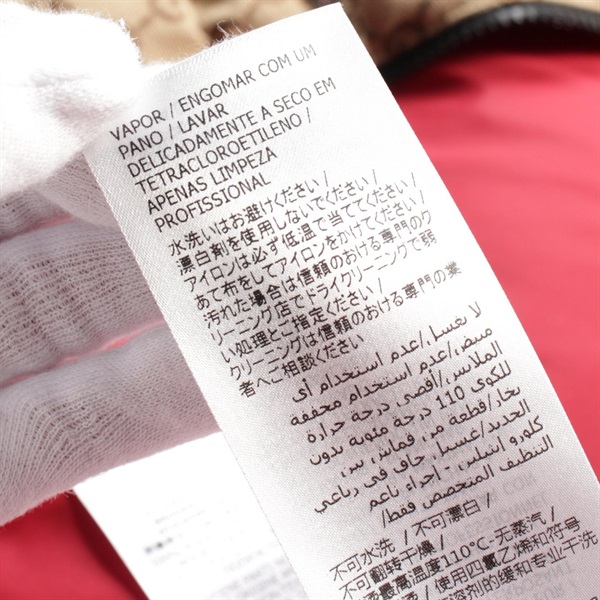 VAPOR / ENGOMAR COM UM
PANO / LAVAR
DELICADAMENTE A SECO EM
TETRACLOROETILENO /
APENAS LIMPEZA
PROFISSIONAL
水洗いはお避けください /
漂白剤を使用しないでください /
アイロンは必ず低温で当ててください /
あて布をしてアイロンをかけてください /
汚れた場合は信頼のおける専門のク
リーニング店でドライクリーニングで弱
い処理とご指定ください /
クリーニングは信頼のおける専門の業
者へご相談ください
لا يغسل/عدم استخدام أى
مبيض/عدم استخدام مجففة
الملابس/أقصى درجة حرارة
للكوى 110 درجة مئوية بدون
بخار/قطعة من قماش بين
الحديد/غسيل جاف فى رباعي
كلورو إيثيلين - إجراء ناعم
التنظيف المتخصص فقط/
不可水洗 / 不可漂白 /
不可翻转干燥 /
最高温度110℃-无蒸汽 /
使用四氯乙烯和符号
溶剂的缓和专业干洗